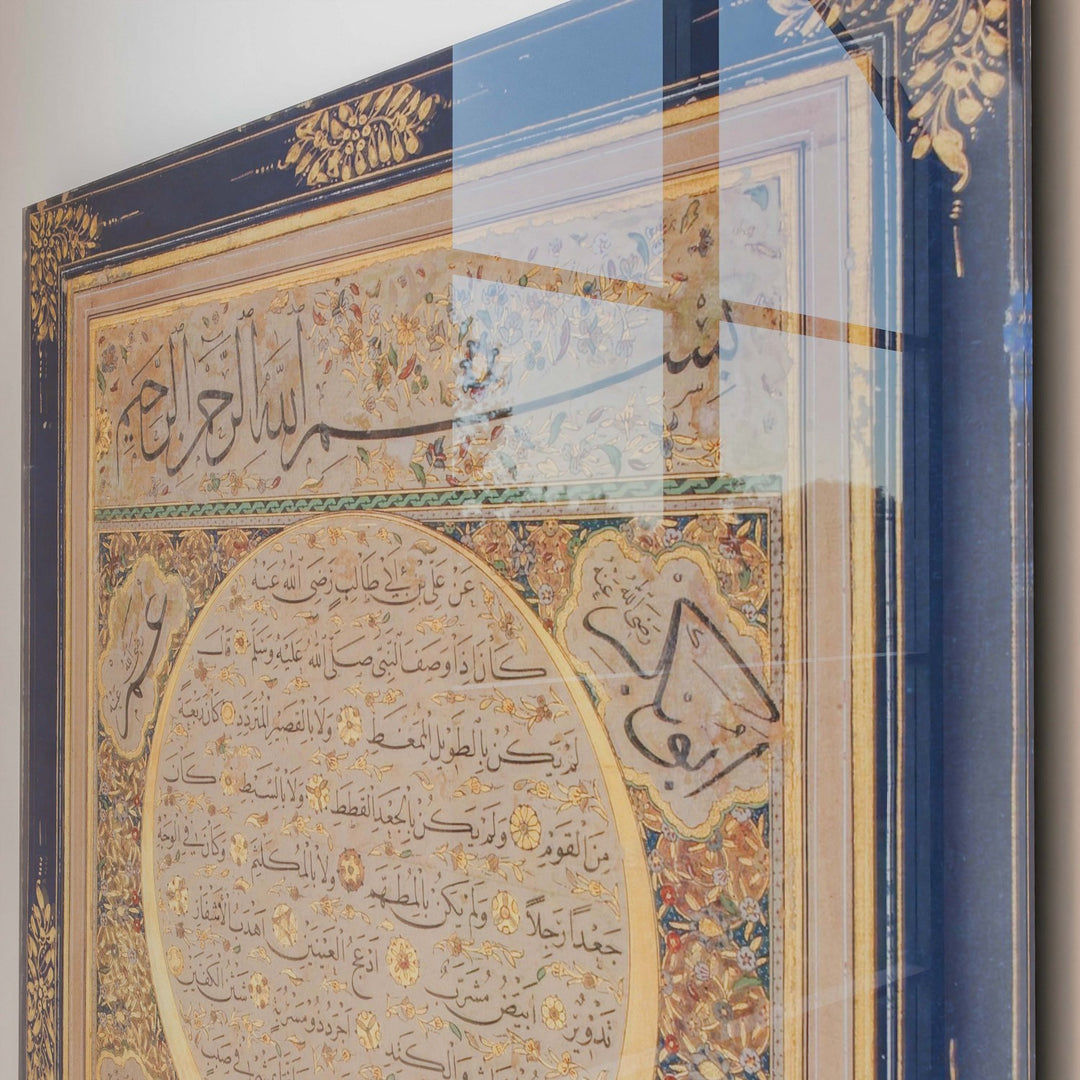 بسم الله الرحمن الرحيم
عن علي بن أبي طالب رضي الله عنه
كان إذا وصف النبي صلى الله عليه وسلم قال
لم يكن بالطويل الممغط ولا بالقصير المتردد وكان ربعة
من القوم ولم يكن بالجعد القطط ولا بالسبط كان
جعداً رجلاً ولم يكن بالمطهم ولا بالمكلثم وكان في الوجه
تدوير أبيض مشرب أدعج العينين أهدب الأشفار
والكتد أجرد ذو مسربة شثن الكفين
أبو بكر رضي الله عنه
عمر رضي الله عنه